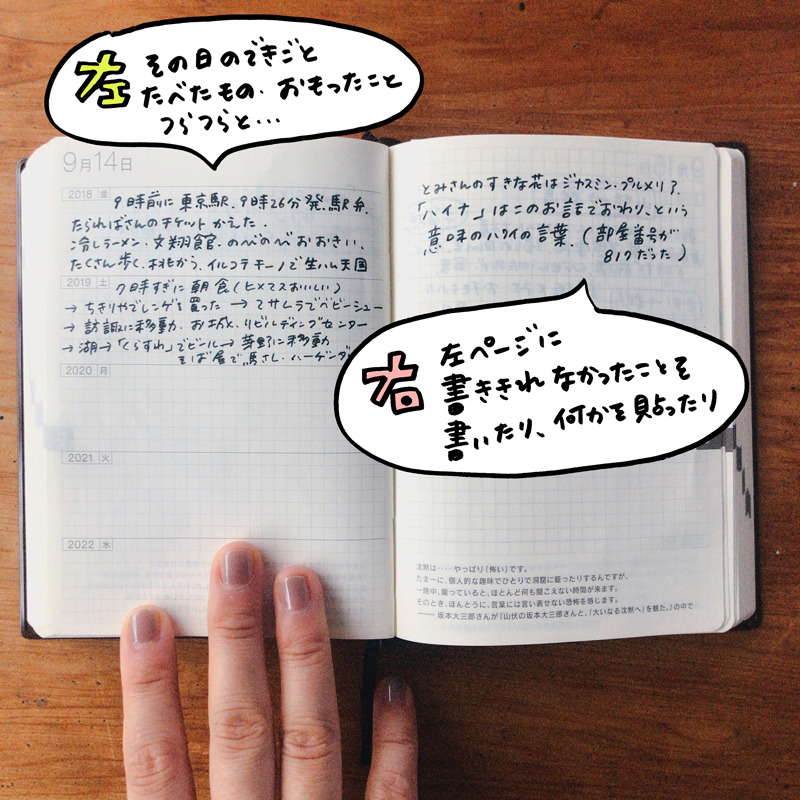 左 その日のできごと
たべたもの・おもったこと
つらつらと…
9月14日
2018 金
9時前に東京駅、9時26分発、駅弁、
たらればさんのチケットかえた。
冷しラーメン・文翔館、のべのべおおきい、
たくさん歩く、桃もかう、イルコテキーノで生ハム天国
2019 土
7日時すぎに朝食(ヒメマスおいしい)
→ちきりやでレンゲを買った →てサムラでベビーシュー
→諏訪に移動、お城、リビルディングセンター
→湖→「くらすわ」でビール→茅野に移動
そば屋で馬さし、ハーゲンダ
2020 月
2021 火
2022 水
とみさんのすきな花はジャスミン・プルメリア、
「ハイナ」はこのお話でおわり、という
意味のハワイの言葉、(部屋番号が
817だった)
右 左ページに
書ききれなかったことを
書いたり、何かを貼ったり
沈黙は‥‥やっぱり「怖い」です。
たまーに、個人的な趣味でひとりで洞窟に籠ったりするんですが、
一晩中、籠っていると、ほとんど何も聞こえない時間が来ます。
そのとき、ほんとうに、言葉には言い表せない恐怖を感じます。
——坂本大三郎さんが『山伏の坂本大三郎さんと、「大いなる沈黙へ」を観た。』の中で